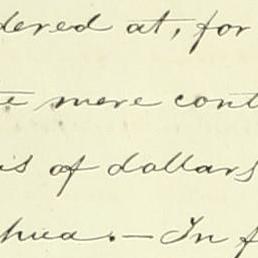 dered at, for
te mere cont
is of dollars
hua.— In f